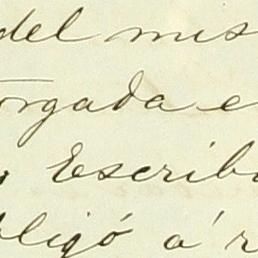 del mis
orgada e
Escriba
bligó á r